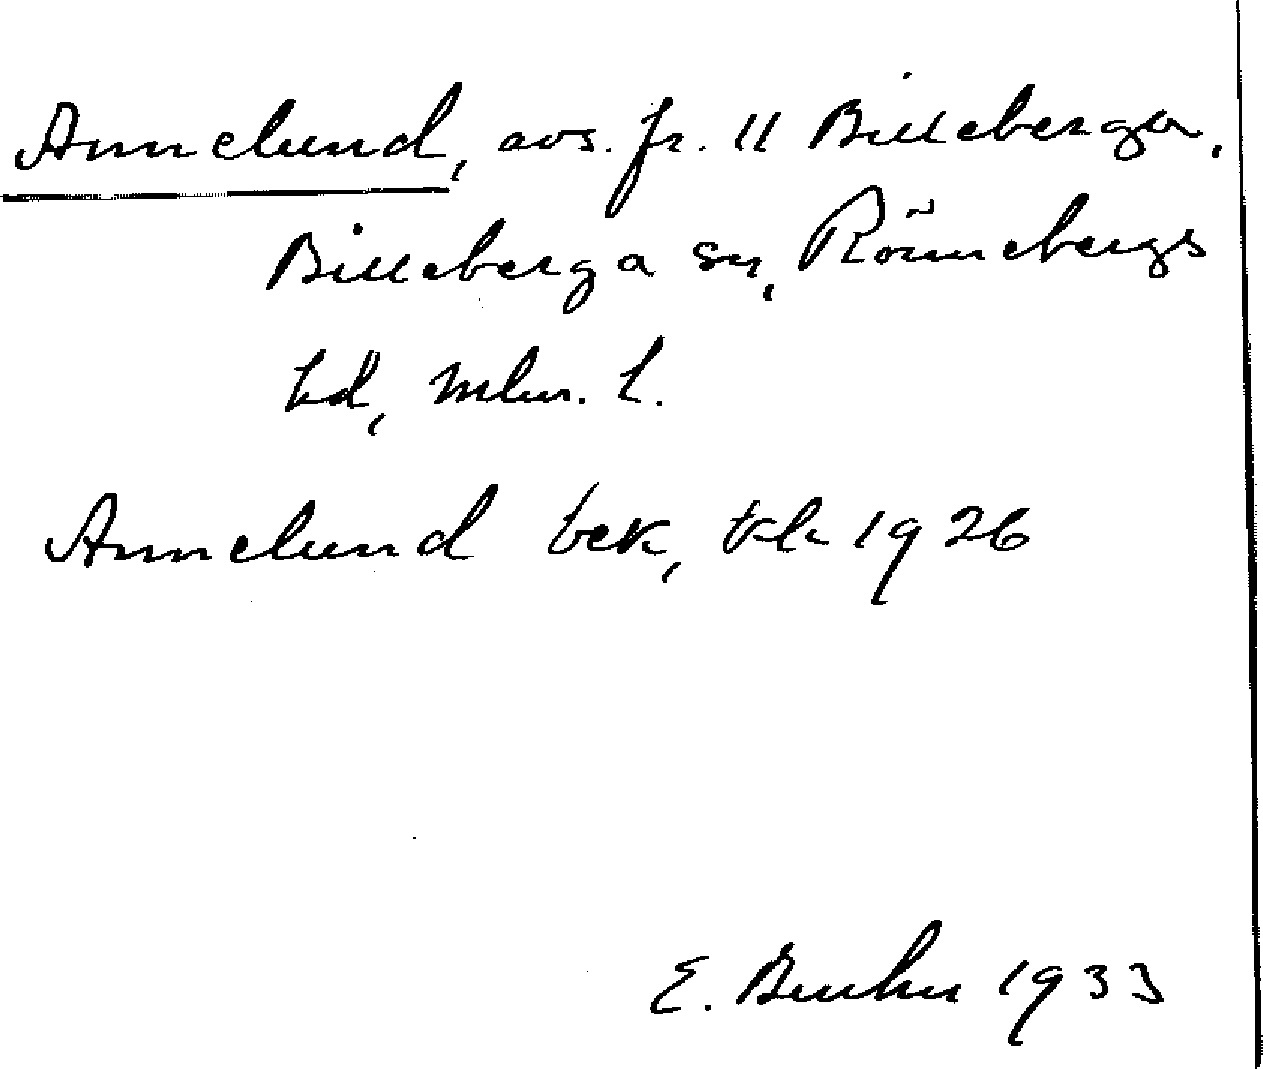 Annelund, avs. fr. 11 Billeberga,
Billeberga sn, Rönnebergs
hd, Mlm. l.
Annelund bek, tlk 1926
E. 1933